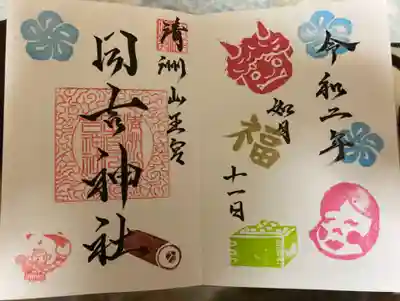 令和二年
如月
福
十一日
清洲山王宮
日吉神社